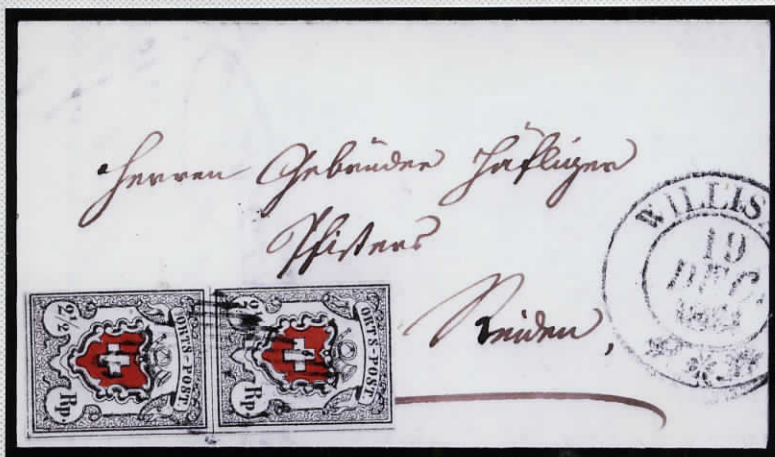 Herren Gebrüder Häfliger
Pfisters
Reiden,
WILLIS
19
DEC
2½ ORTS-POST. Rp.
2½ ORTS-POST. Rp.